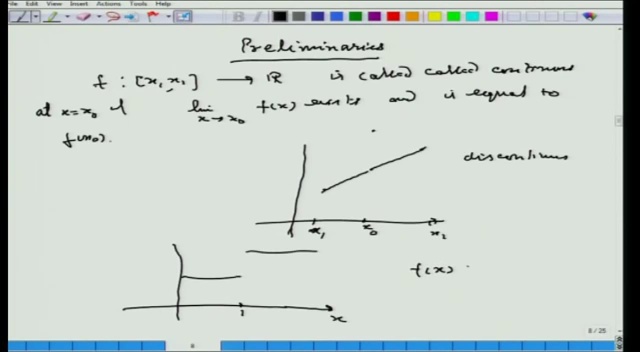 File Edit View Insert Actions Tools Help
Preliminaries
f : [x₁, x₁] → ℝ is called called continuous
at x=x₀ if lim x→x₀ f(x) exists and is equal to
f(x₀).
discontinuous
x₁ x₀ x₂
f(x)
1 x
8 / 25
8